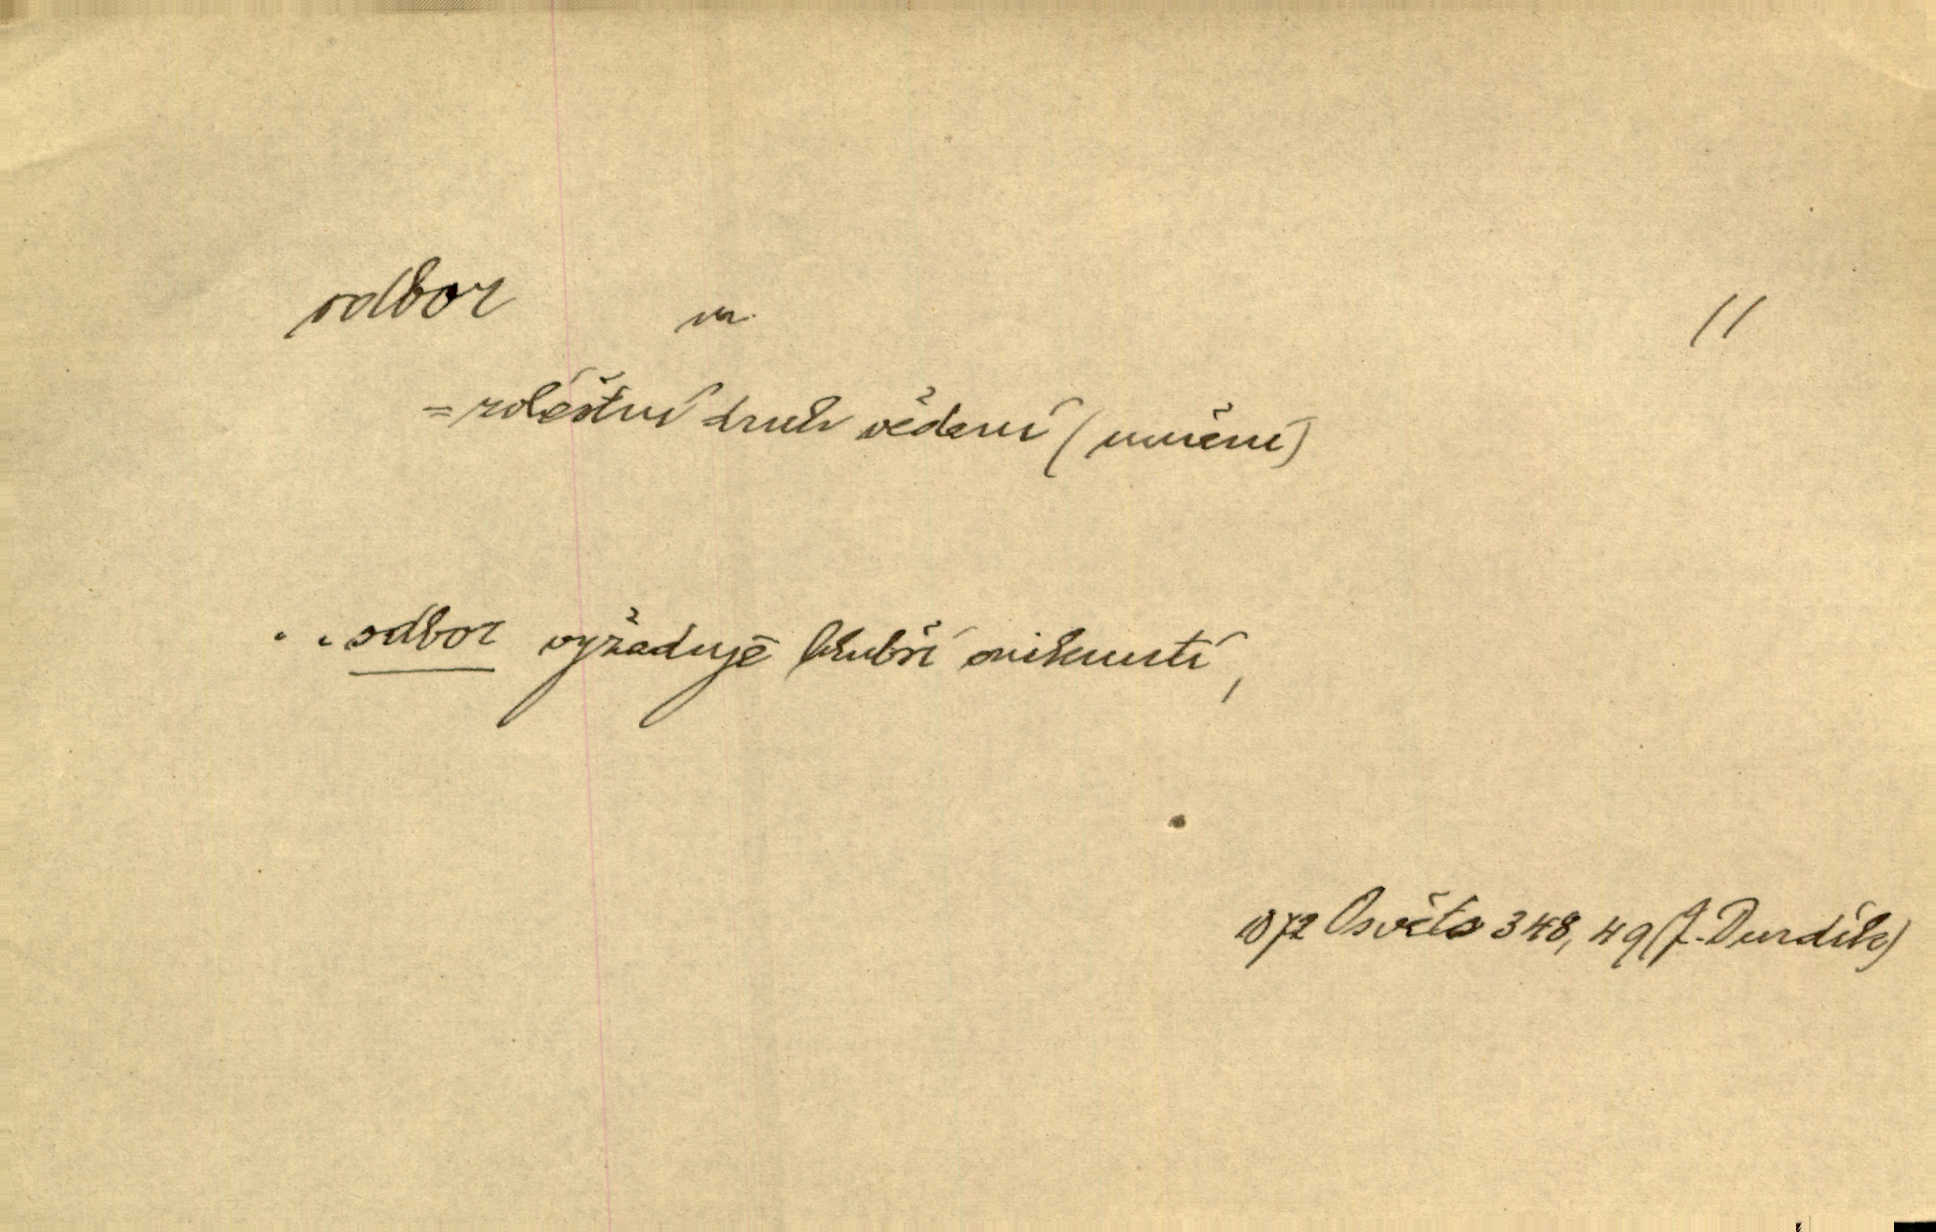 odbor m. //
= zvláštní druh vědění (umění)
. . odbor vyžaduje hlubší vniknutí,
1872 Osvěta 348, 49 (J. Durdík)